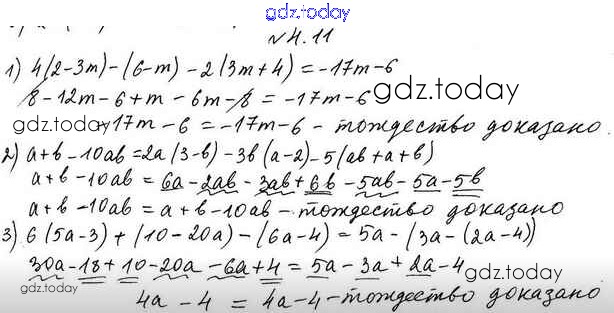 gdz.today
№4.11
1) 4(2-3m)-(6-m)-2(3m+4)=-17m-6
8-12m-6+m-6m-8=-17m-6 gdz.today
gdz.today -17m-6=-17m-6-тождество доказано.
2) a+b-10ab=2a(3-b)-3b(a-2)-5(ab+a+b)
a+b-10ab=6a-2ab-3ab+6b-5ab-5a-5b
a+b-10ab=a+b-10ab-тождество доказано
3) 6(5a-3)+(10-20a)-(6a-4)=5a-(3a-(2a-4))
30a-18+10-20a-6a+4=5a-3a+2a-4 gdz.today
gdz.today 4a-4=4a-4-тождество доказано